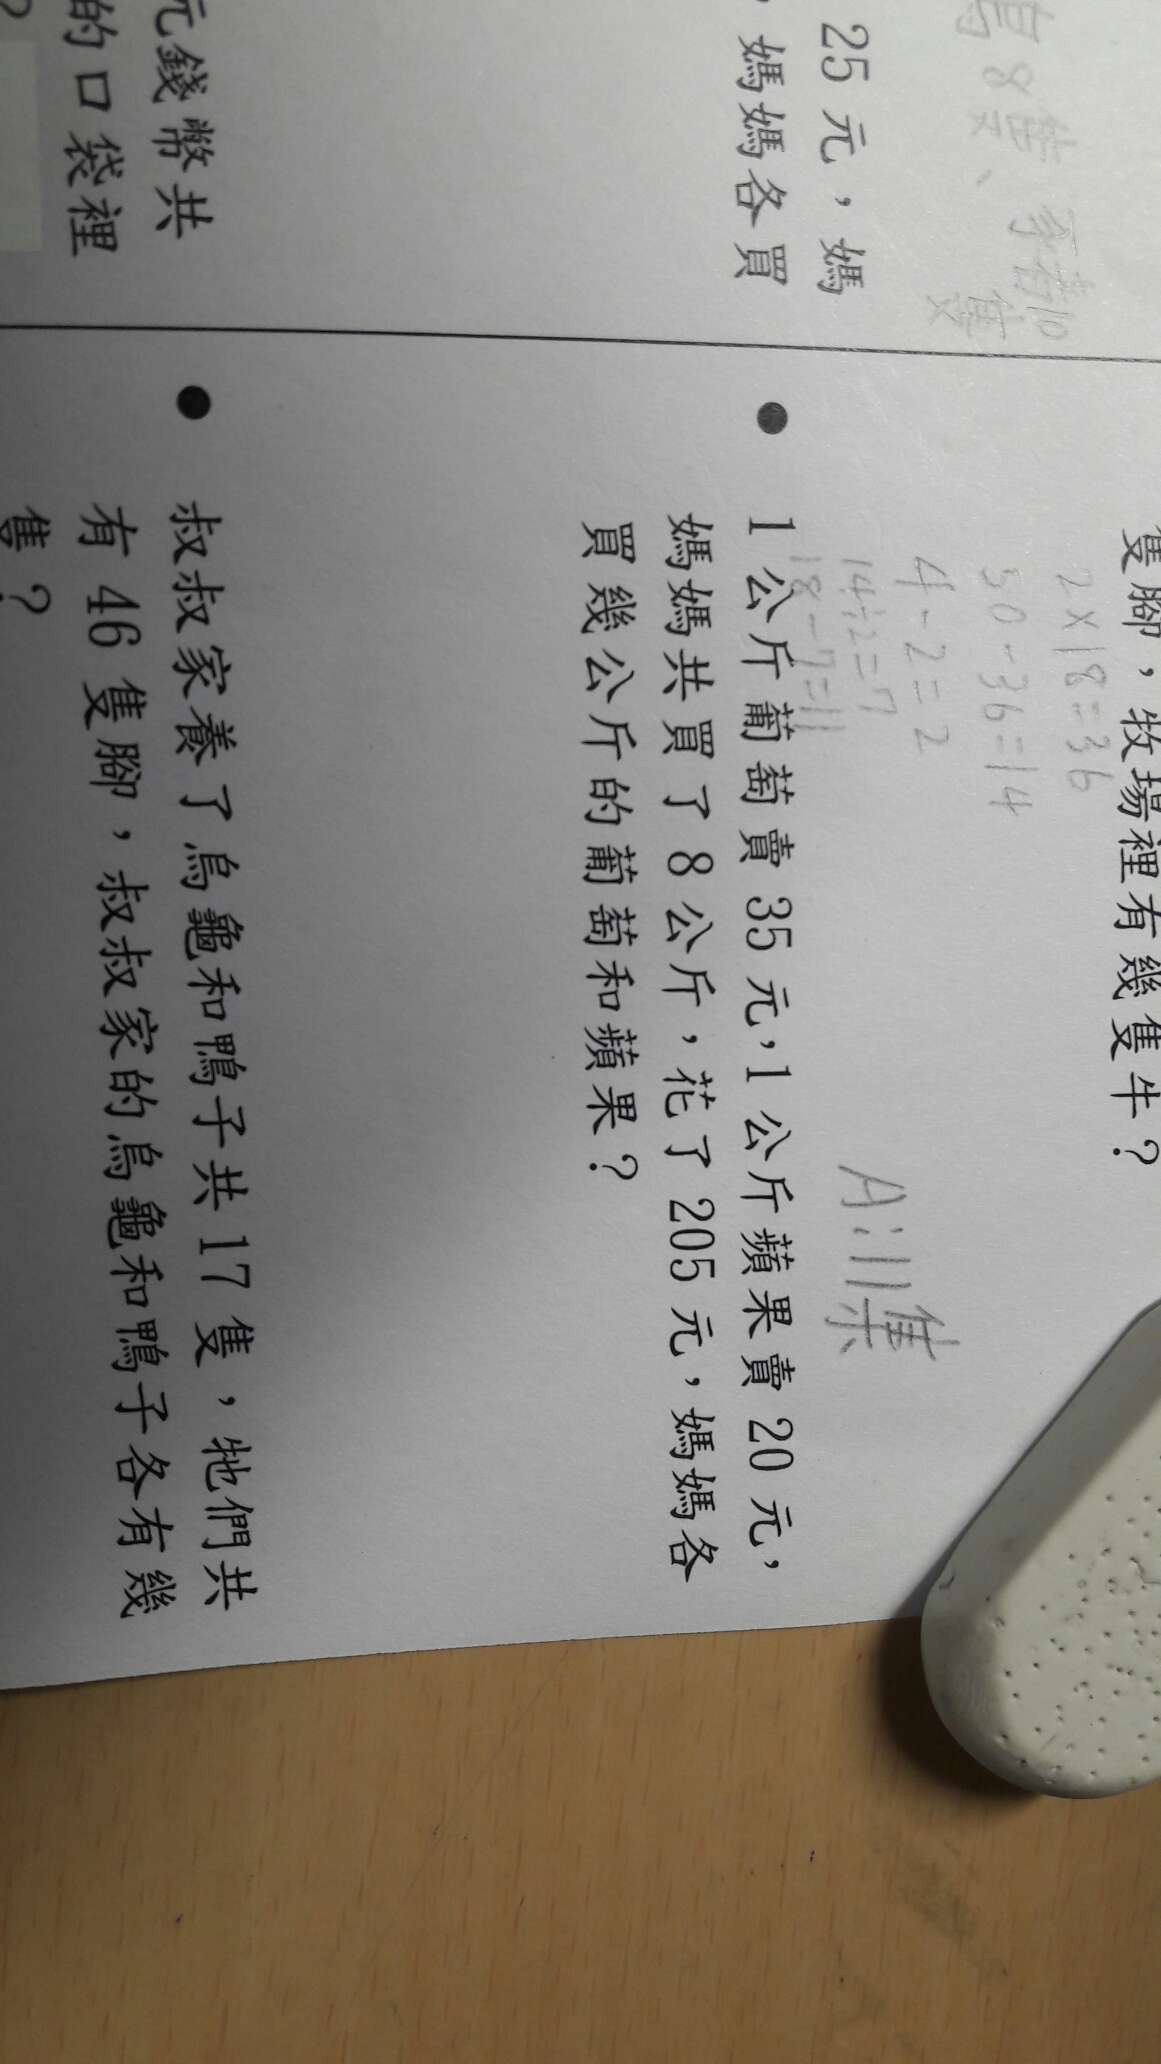 隻腳，牧場裡有幾隻牛？
2×18=36
50-36=14
4-2=2
14÷2=7
18-7=11
A:11隻
● 1公斤葡萄賣35元，1公斤蘋果賣20元，
媽媽共買了8公斤，花了205元，媽媽各
買幾公斤的葡萄和蘋果？
● 叔叔家養了烏龜和鴨子共17隻，牠們共
有46隻腳，叔叔家的烏龜和鴨子各有幾
隻？
25元，媽
，媽媽各買
元錢幣共
的口袋裡
？